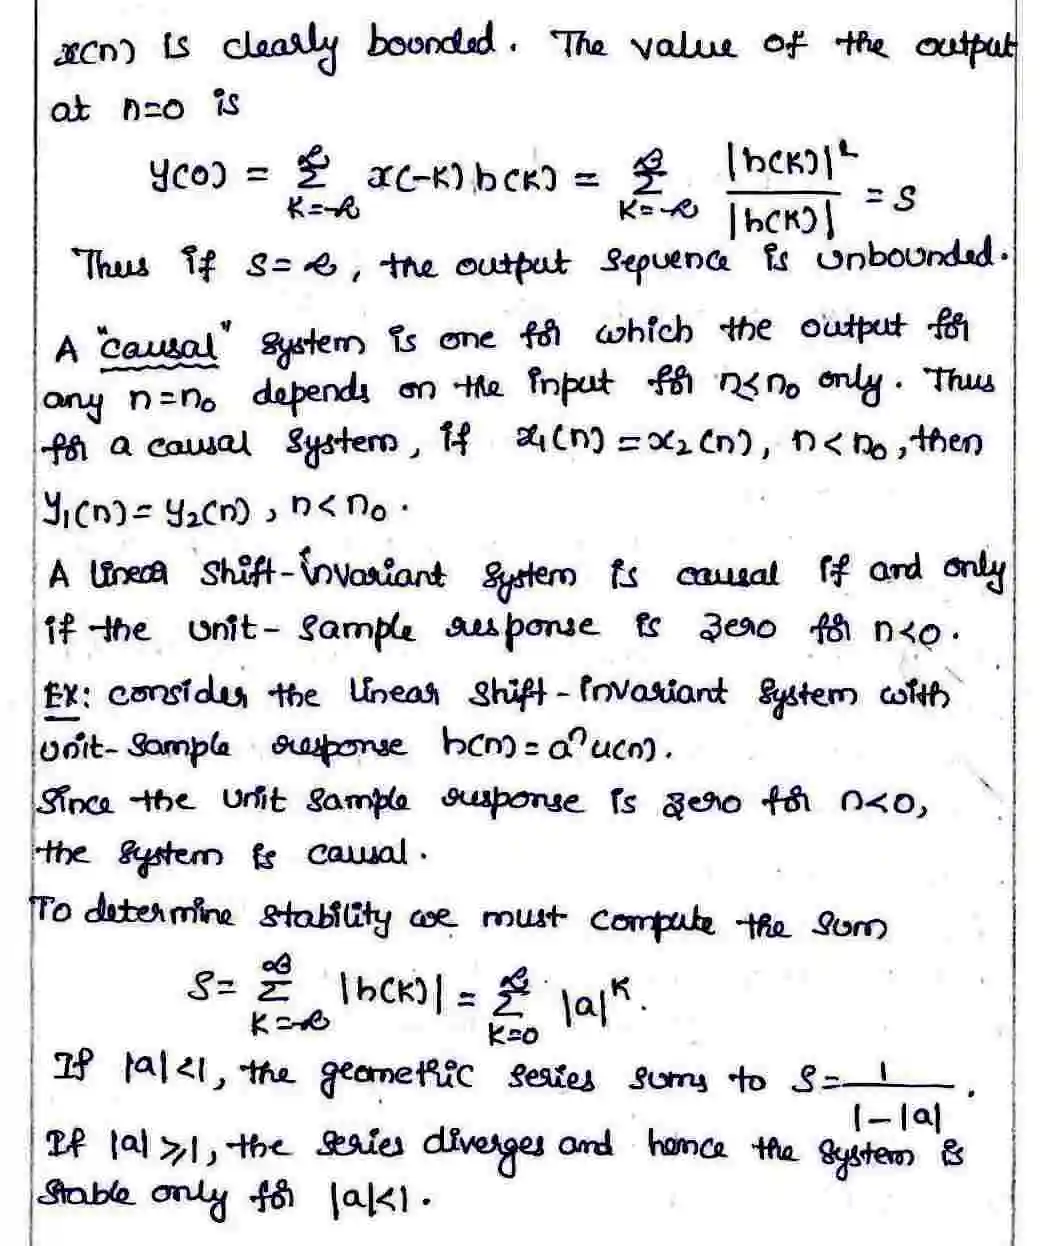 x(n) is clearly bounded. The value of the output
at n=0 is
y(0) = ∞ Σ K=-∞ x(-K) h(K) = ∞ Σ K=-∞ |h(K)|² / |h(K)| = S
Thus if S=∞, the output sequence is unbounded.
A "causal" system is one for which the output for
any n=n₀ depends on the input for n≤n₀ only. Thus
for a causal system, if x₁(n) = x₂(n), n<n₀, then
y₁(n) = y₂(n), n<n₀.
A linear shift-invariant system is causal if and only
if the unit-sample response is zero for n<0.
Ex: consider the linear shift-invariant system with
unit-sample response h(n) = aⁿ u(n).
Since the unit sample response is zero for n<0,
the system is causal.
To determine stability we must compute the sum
S = ∞ Σ K=-∞ |h(K)| = ∞ Σ K=0 |a|ᴷ.
If |a|<1, the geometric series sums to S = 1 / 1-|a|.
If |a|⩾1, the series diverges and hence the system is
stable only for |a|<1.